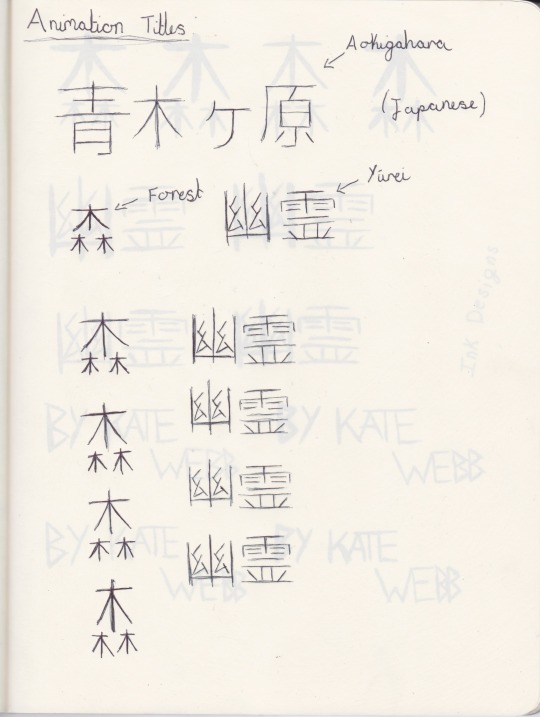 Animation Titles
Aokigahara
青木ヶ原
(Japanese)
Forest
Yūrei
森 幽霊
森 幽霊
森 幽霊
森 幽霊
森 幽霊
Ink Designs
BY KATE WEBB
BY KATE WEBB
BY KATE WEBB
BY KATE WEBB